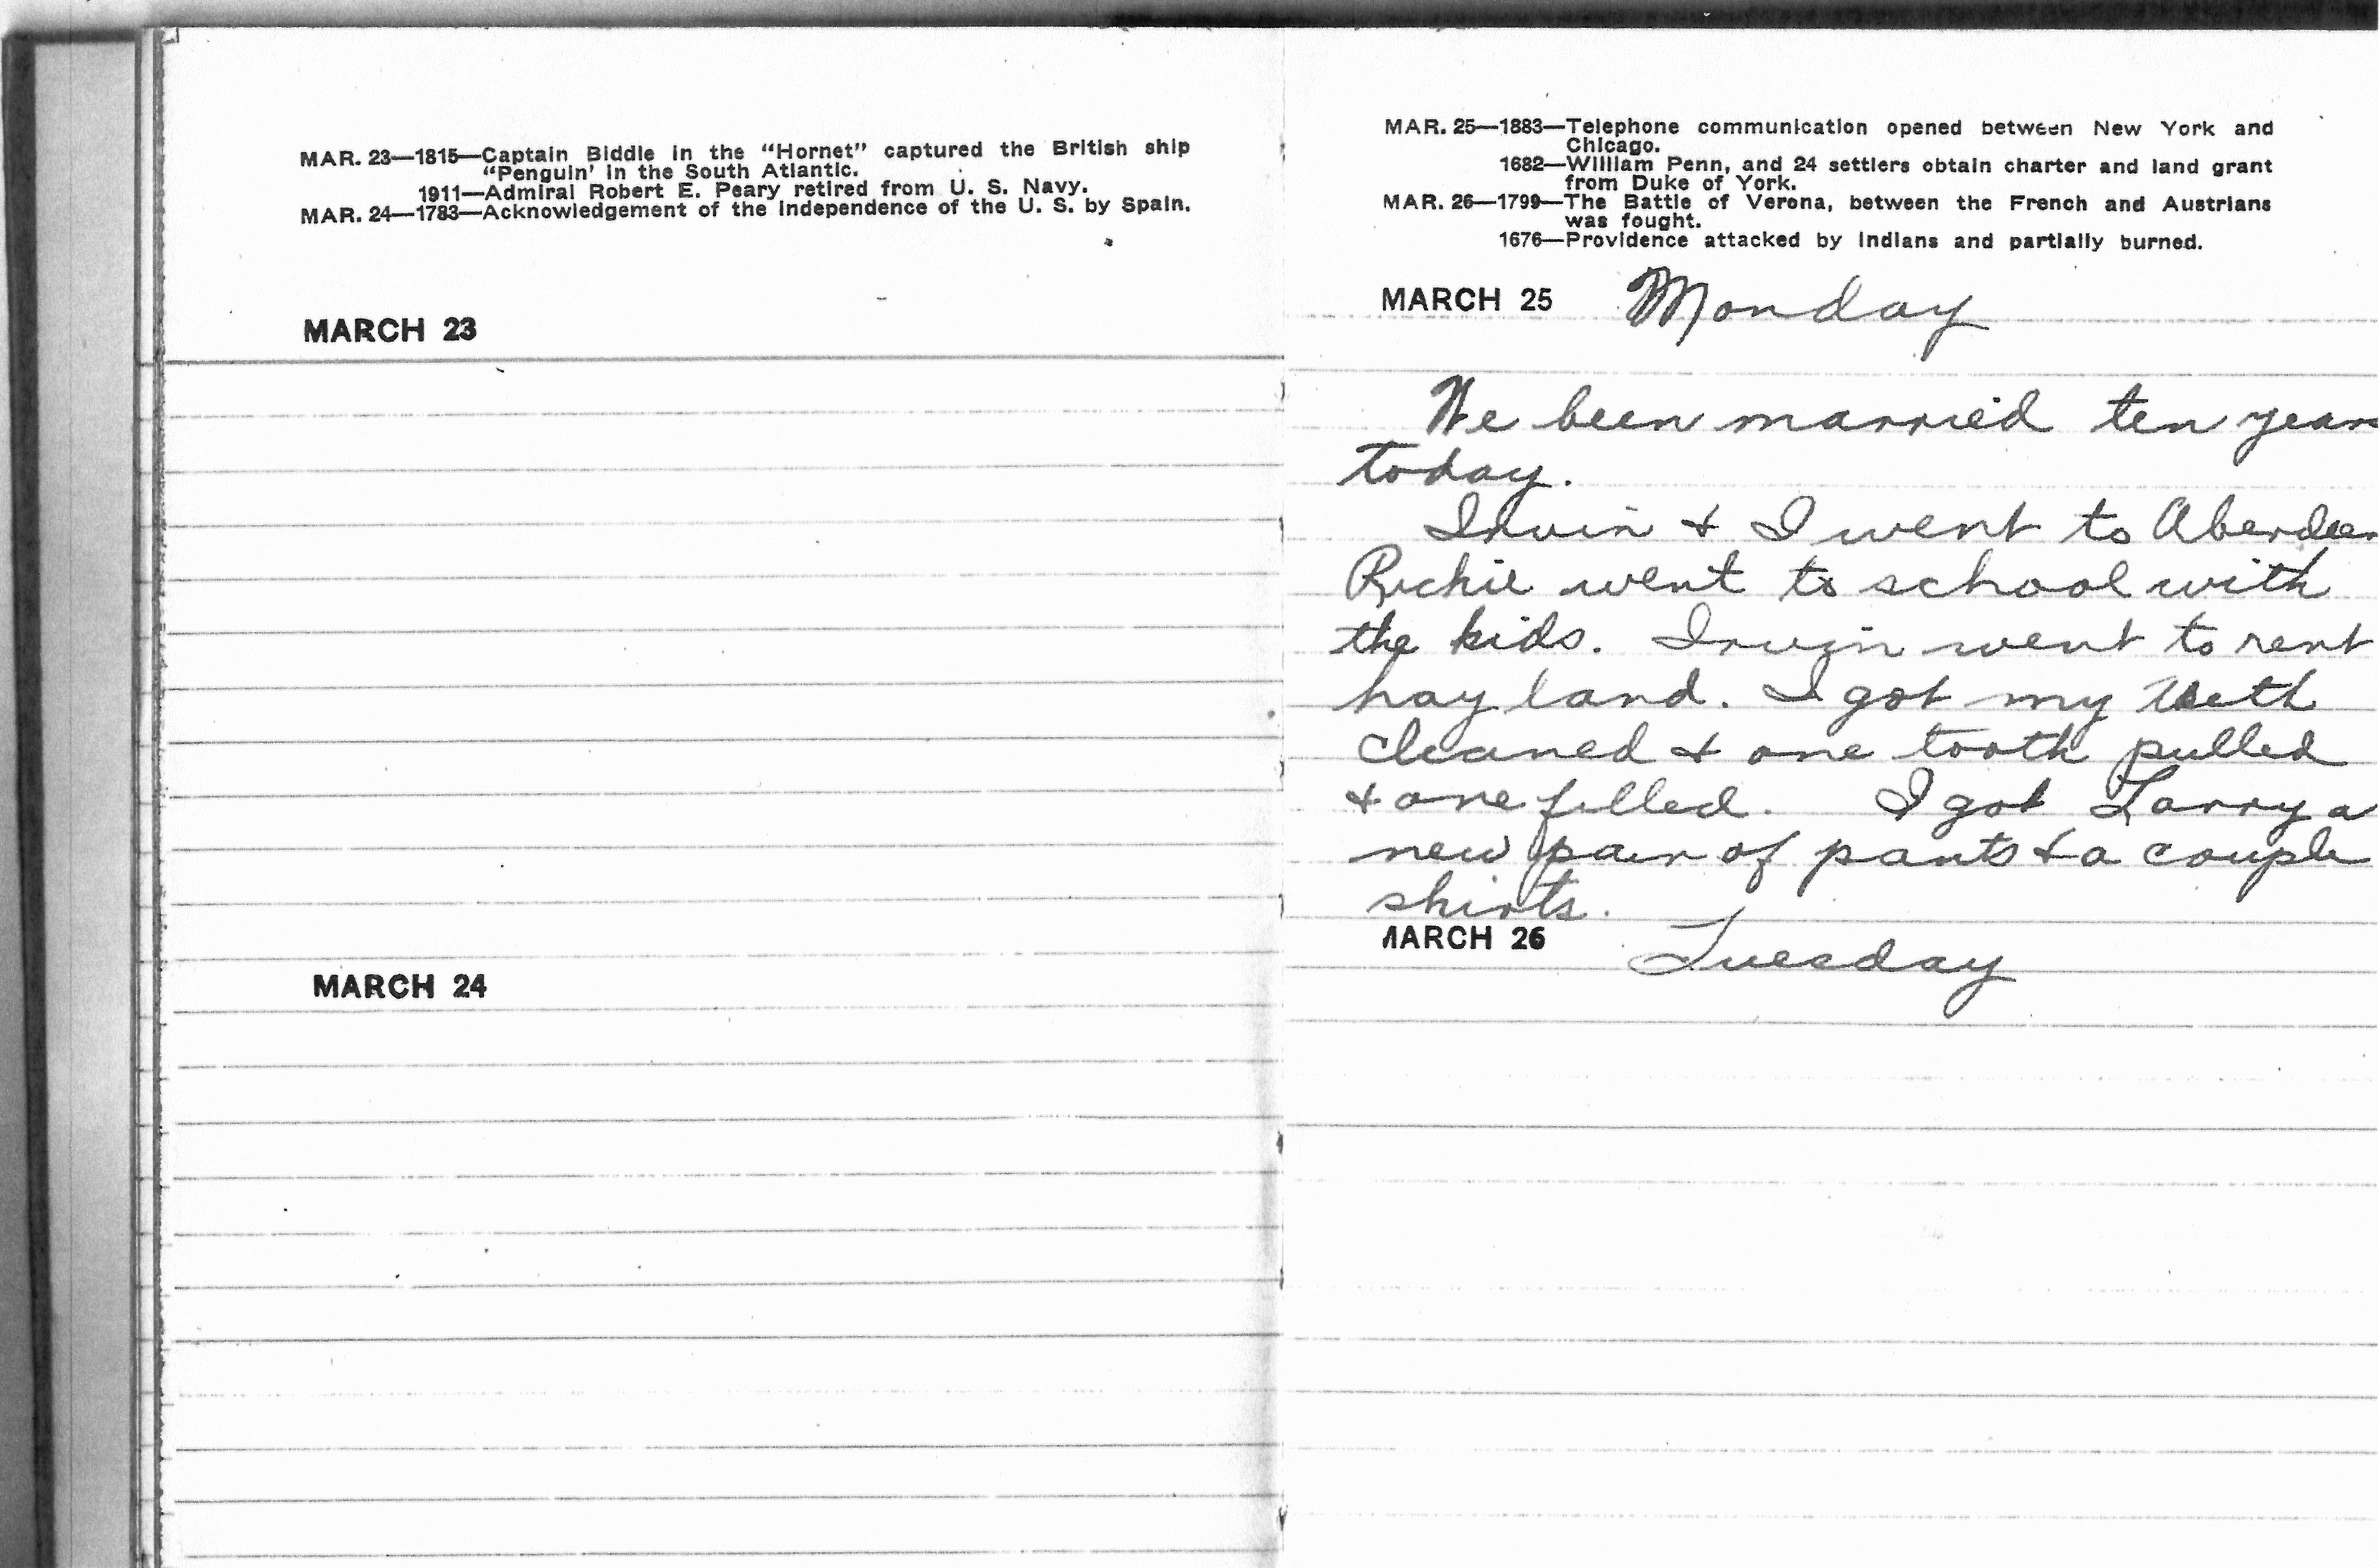 MAR. 23—1815—Captain Biddle in the “Hornet” captured the British ship
“Penguin’ in the South Atlantic.
1911—Admiral Robert E. Peary retired from U. S. Navy.
MAR. 24—1783—Acknowledgement of the Independence of the U. S. by Spain.
MARCH 23
MARCH 24
MAR. 25—1883—Telephone communication opened between New York and
Chicago.
1682—William Penn, and 24 settlers obtain charter and land grant
from Duke of York.
MAR. 26—1799—The Battle of Verona, between the French and Austrians
was fought.
1676—Providence attacked by Indians and partially burned.
MARCH 25 Monday
We been married ten years
today.
Irvin & I went to Aberdeen
Richie went to school with
the kids. Irvin went to rent
hay land. I got my teeth
cleaned & one tooth pulled
& one filled. I got Larry a
new pair of pants & a couple
shirts.
MARCH 26 Tuesday